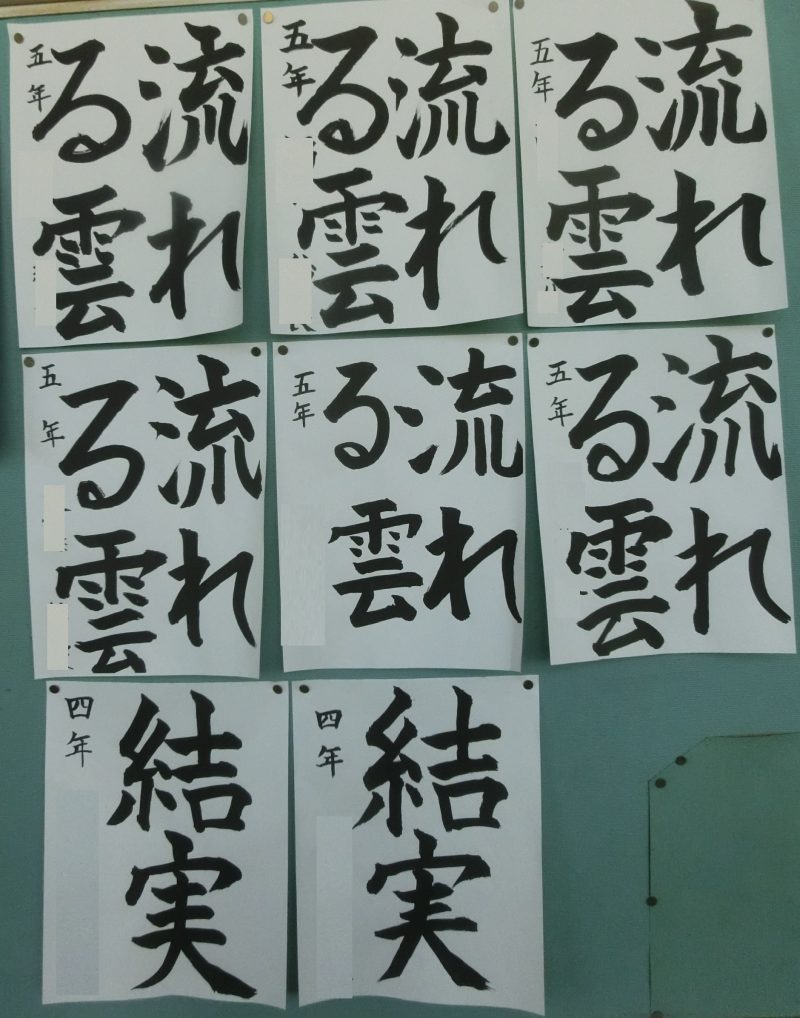 流れ
る雲
五年
流れ
る雲
五年
流れ
る雲
五年
流れ
る雲
五年
流れ
る雲
五年
流れ
る雲
五年
結実
四年
結実
四年